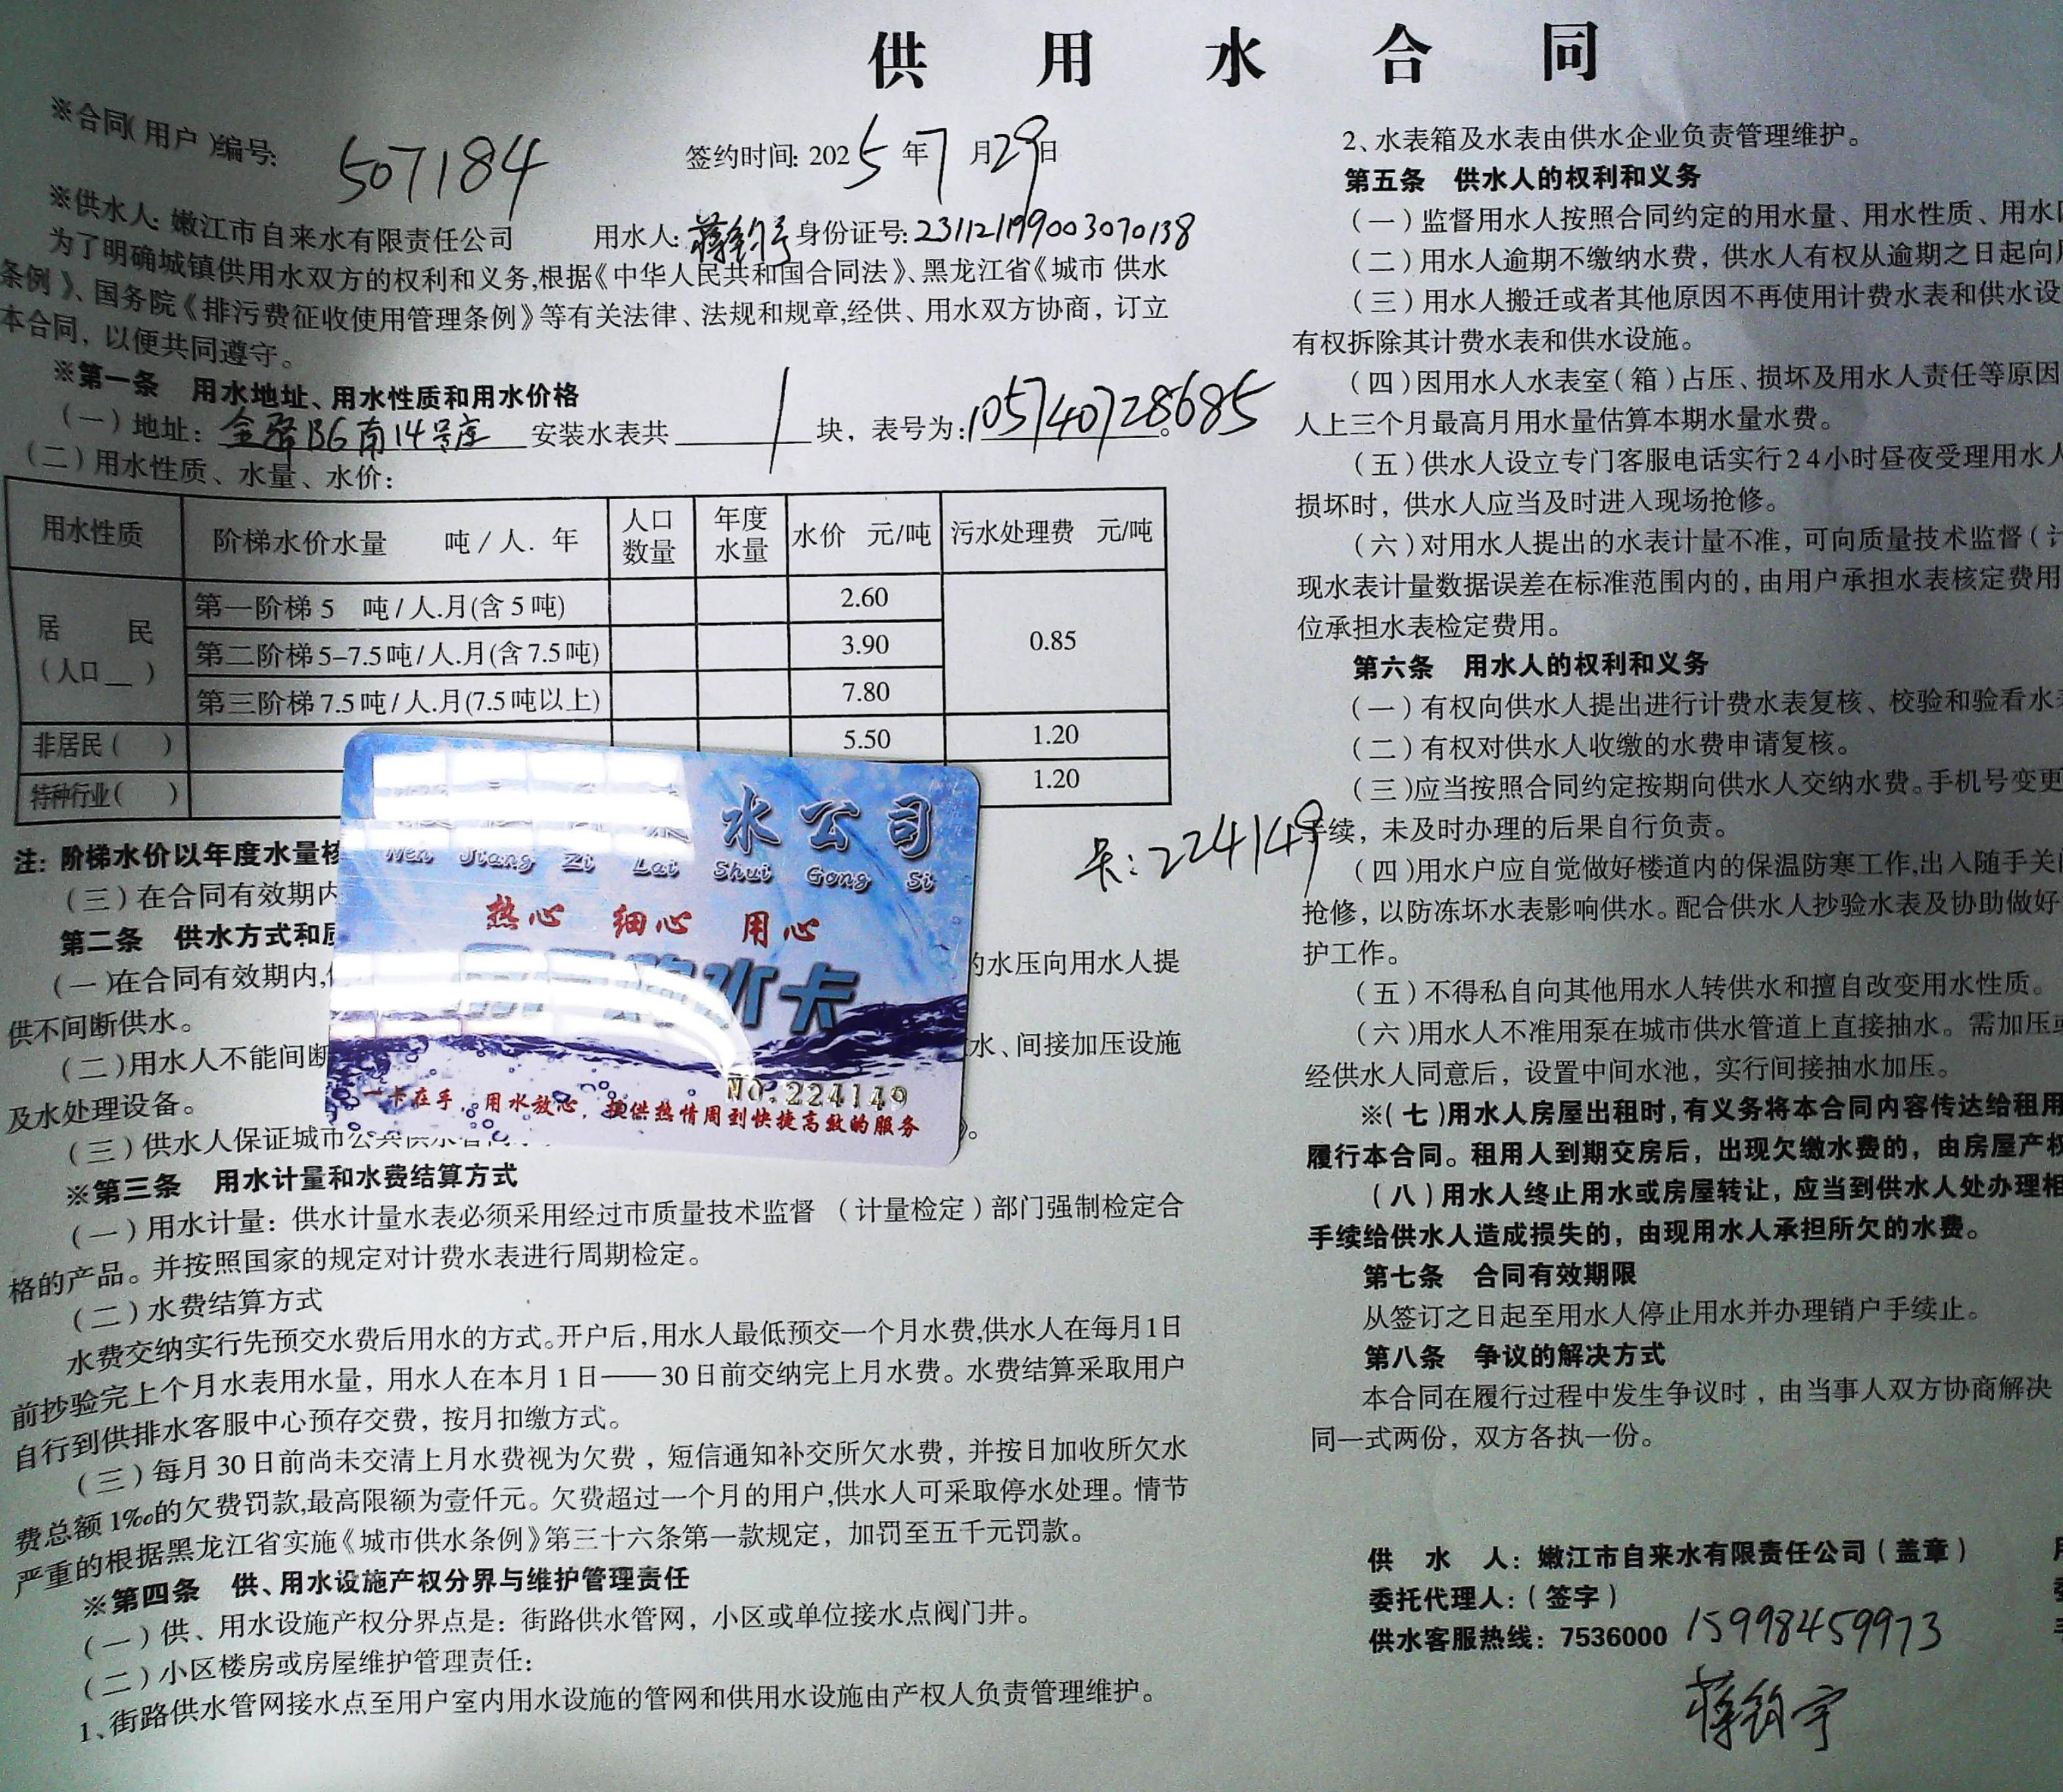 供用水合同
※合同(用户)编号: 507184 签约时间: 2025年7月29日
※供水人: 嫩江市自来水有限责任公司 用水人: 蒋钧宇 身份证号: 231121199003070138
为了明确城镇供用水双方的权利和义务,根据《中华人民共和国合同法》、黑龙江省《城市 供水
条例》、国务院《排污费征收使用管理条例》等有关法律、法规和规章,经供、用水双方协商，订立
本合同，以便共同遵守。
※第一条 用水地址、用水性质和用水价格
(一)地址: B6南14号 安装水表共 1 块，表号为: 105740728685。
(二)用水性质、水量、水价:
用水性质 阶梯水价水量 吨/人.年 人口数量 年度水量 水价 元/吨 污水处理费 元/吨
居民(人口__) 第一阶梯5 吨/人.月(含5吨) 2.60 0.85
第二阶梯5-7.5吨/人.月(含7.5吨) 3.90
第三阶梯7.5吨/人.月(7.5吨以上) 7.80
非居民( ) 5.50 1.20
特种行业( ) 1.20
注: 阶梯水价以年度水量核
卡: 224149
(三)在合同有效期内
第二条 供水方式和质
(一)在合同有效期内, 的水压向用水人提
供不间断供水。
(二)用水人不能间断 水、间接加压设施
及水处理设备。
(三)供水人保证城市公共供水管网 。
水公司
Nen Jiang Zi Lai Shui Gong Si
热心 细心 用心
水卡
NO.224149
一卡在手，用水放心，提供热情周到快捷高效的服务
※第三条 用水计量和水费结算方式
(一)用水计量: 供水计量水表必须采用经过市质量技术监督 (计量检定)部门强制检定合
格的产品。并按照国家的规定对计费水表进行周期检定。
(二)水费结算方式
水费交纳实行先预交水费后用水的方式。开户后,用水人最低预交一个月水费,供水人在每月1日
前抄验完上个月水表用水量，用水人在本月1日——30日前交纳完上月水费。水费结算采取用户
自行到供排水客服中心预存交费，按月扣缴方式。
(三)每月30日前尚未交清上月水费视为欠费，短信通知补交所欠水费，并按日加收所欠水
费总额1‰的欠费罚款,最高限额为壹仟元。欠费超过一个月的用户,供水人可采取停水处理。情节
严重的根据黑龙江省实施《城市供水条例》第三十六条第一款规定，加罚至五千元罚款。
※第四条 供、用水设施产权分界与维护管理责任
(一)供、用水设施产权分界点是: 街路供水管网，小区或单位接水点阀门井。
(二)小区楼房或房屋维护管理责任:
1、街路供水管网接水点至用户室内用水设施的管网和供用水设施由产权人负责管理维护。
2、水表箱及水表由供水企业负责管理维护。
第五条 供水人的权利和义务
(一)监督用水人按照合同约定的用水量、用水性质、用水
(二)用水人逾期不缴纳水费，供水人有权从逾期之日起向
(三)用水人搬迁或者其他原因不再使用计费水表和供水设
有权拆除其计费水表和供水设施。
(四)因用水人水表室(箱)占压、损坏及用水人责任等原因
人上三个月最高月用水量估算本期水量水费。
(五)供水人设立专门客服电话实行24小时昼夜受理用水人
损坏时，供水人应当及时进入现场抢修。
(六)对用水人提出的水表计量不准，可向质量技术监督(计
现水表计量数据误差在标准范围内的,由用户承担水表核定费用
位承担水表检定费用。
第六条 用水人的权利和义务
(一)有权向供水人提出进行计费水表复核、校验和验看水
(二)有权对供水人收缴的水费申请复核。
(三)应当按照合同约定按期向供水人交纳水费。手机号变更
手续，未及时办理的后果自行负责。
(四)用水户应自觉做好楼道内的保温防寒工作,出入随手关
抢修，以防冻坏水表影响供水。配合供水人抄验水表及协助做好
护工作。
(五)不得私自向其他用水人转供水和擅自改变用水性质。
(六)用水人不准用泵在城市供水管道上直接抽水。需加压
经供水人同意后，设置中间水池，实行间接抽水加压。
※(七)用水人房屋出租时,有义务将本合同内容传达给租用
履行本合同。租用人到期交房后，出现欠缴水费的，由房屋产权
(八)用水人终止用水或房屋转让，应当到供水人处办理相
手续给供水人造成损失的，由现用水人承担所欠的水费。
第七条 合同有效期限
从签订之日起至用水人停止用水并办理销户手续止。
第八条 争议的解决方式
本合同在履行过程中发生争议时，由当事人双方协商解决
同一式两份，双方各执一份。
供 水 人: 嫩江市自来水有限责任公司(盖章)
委托代理人:(签字)
供水客服热线: 7536000 15998459973
蒋钧宇